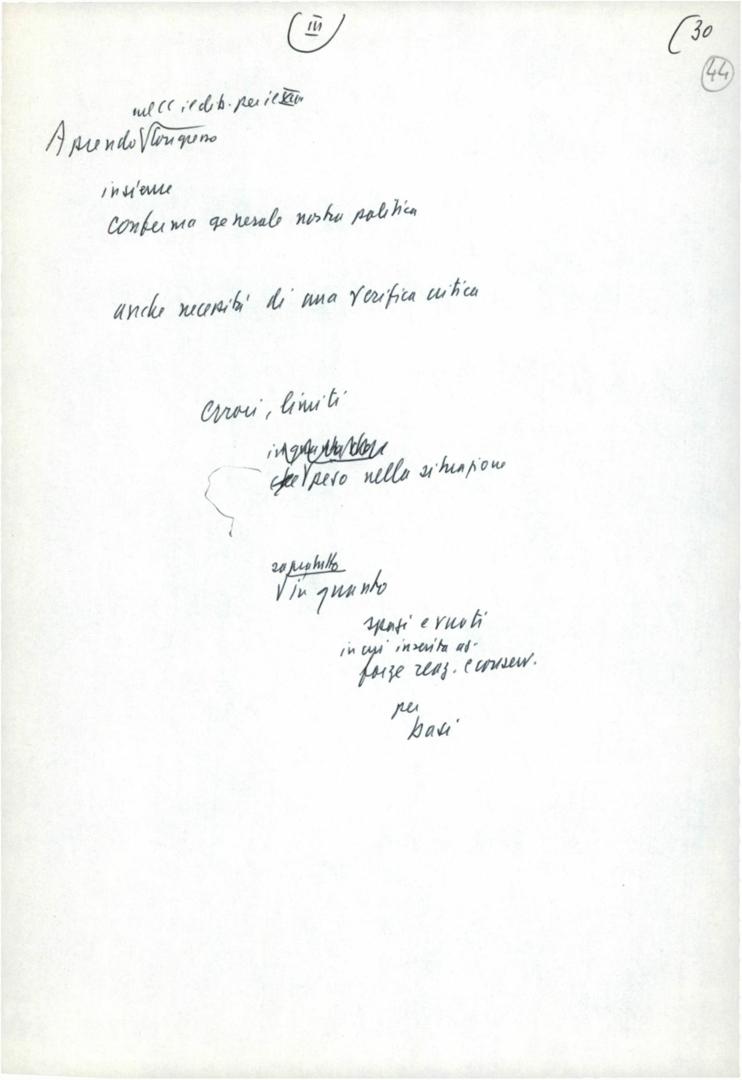 III
30
44
nel CC il dib. per il XIII
Aprendo Congresso
insieme
conferma generale nostra politica
anche necessità di una verifica critica
errori, limiti
in quanto
peso nella situazione
soprattutto
in quanto
spazi e vuoti
in cui inserita az.
forze reaz. e conserv.
per
basi